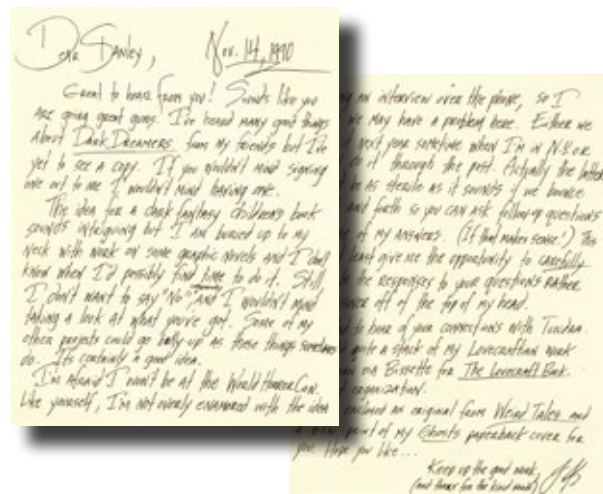 Dear Stanley, Nov. 14, 1990
Great to hear from you! Sounds like you
are going great guns. I've heard many good things
about Dark Dreamers from my friends but I've
yet to see a copy. If you wouldn't mind signing
one out to me I wouldn't mind having one.
The idea for a dark fantasy children's book
sounds intriguing but I am buried up to my
neck with work on some graphic novels and I don't
know when I'd possibly find time to do it. Still
I don't want to say "No", and I wouldn't mind
taking a look at what you've got. Some of my
other projects could go belly-up as these things sometimes
do. Its certainly a good idea.
I'm afraid I won't be at the World Horror Con.
Like yourself, I'm not overly enamored with the idea
an interview over the phone, so I
we may have a problem here. Either we
next year sometime when I'm in N.Y. or
do it through the post. Actually the latter
be as sterile as it sounds if we bounce
and forth so you can ask follow-up questions
of my answers. (If that makes sense!) This
least give me the opportunity to carefully
the responses to your questions rather
off of the top of my head.
to hear of your connections with Tundra.
quite a stack of my Lovecraftian work
via Bissette for The Lovecraft Book
organization.
enclosed an original from Weird Tales and
print of my Ghosts paperback cover for
you. Hope you like...
Keep up the good work,
(and thanks for the kind words)